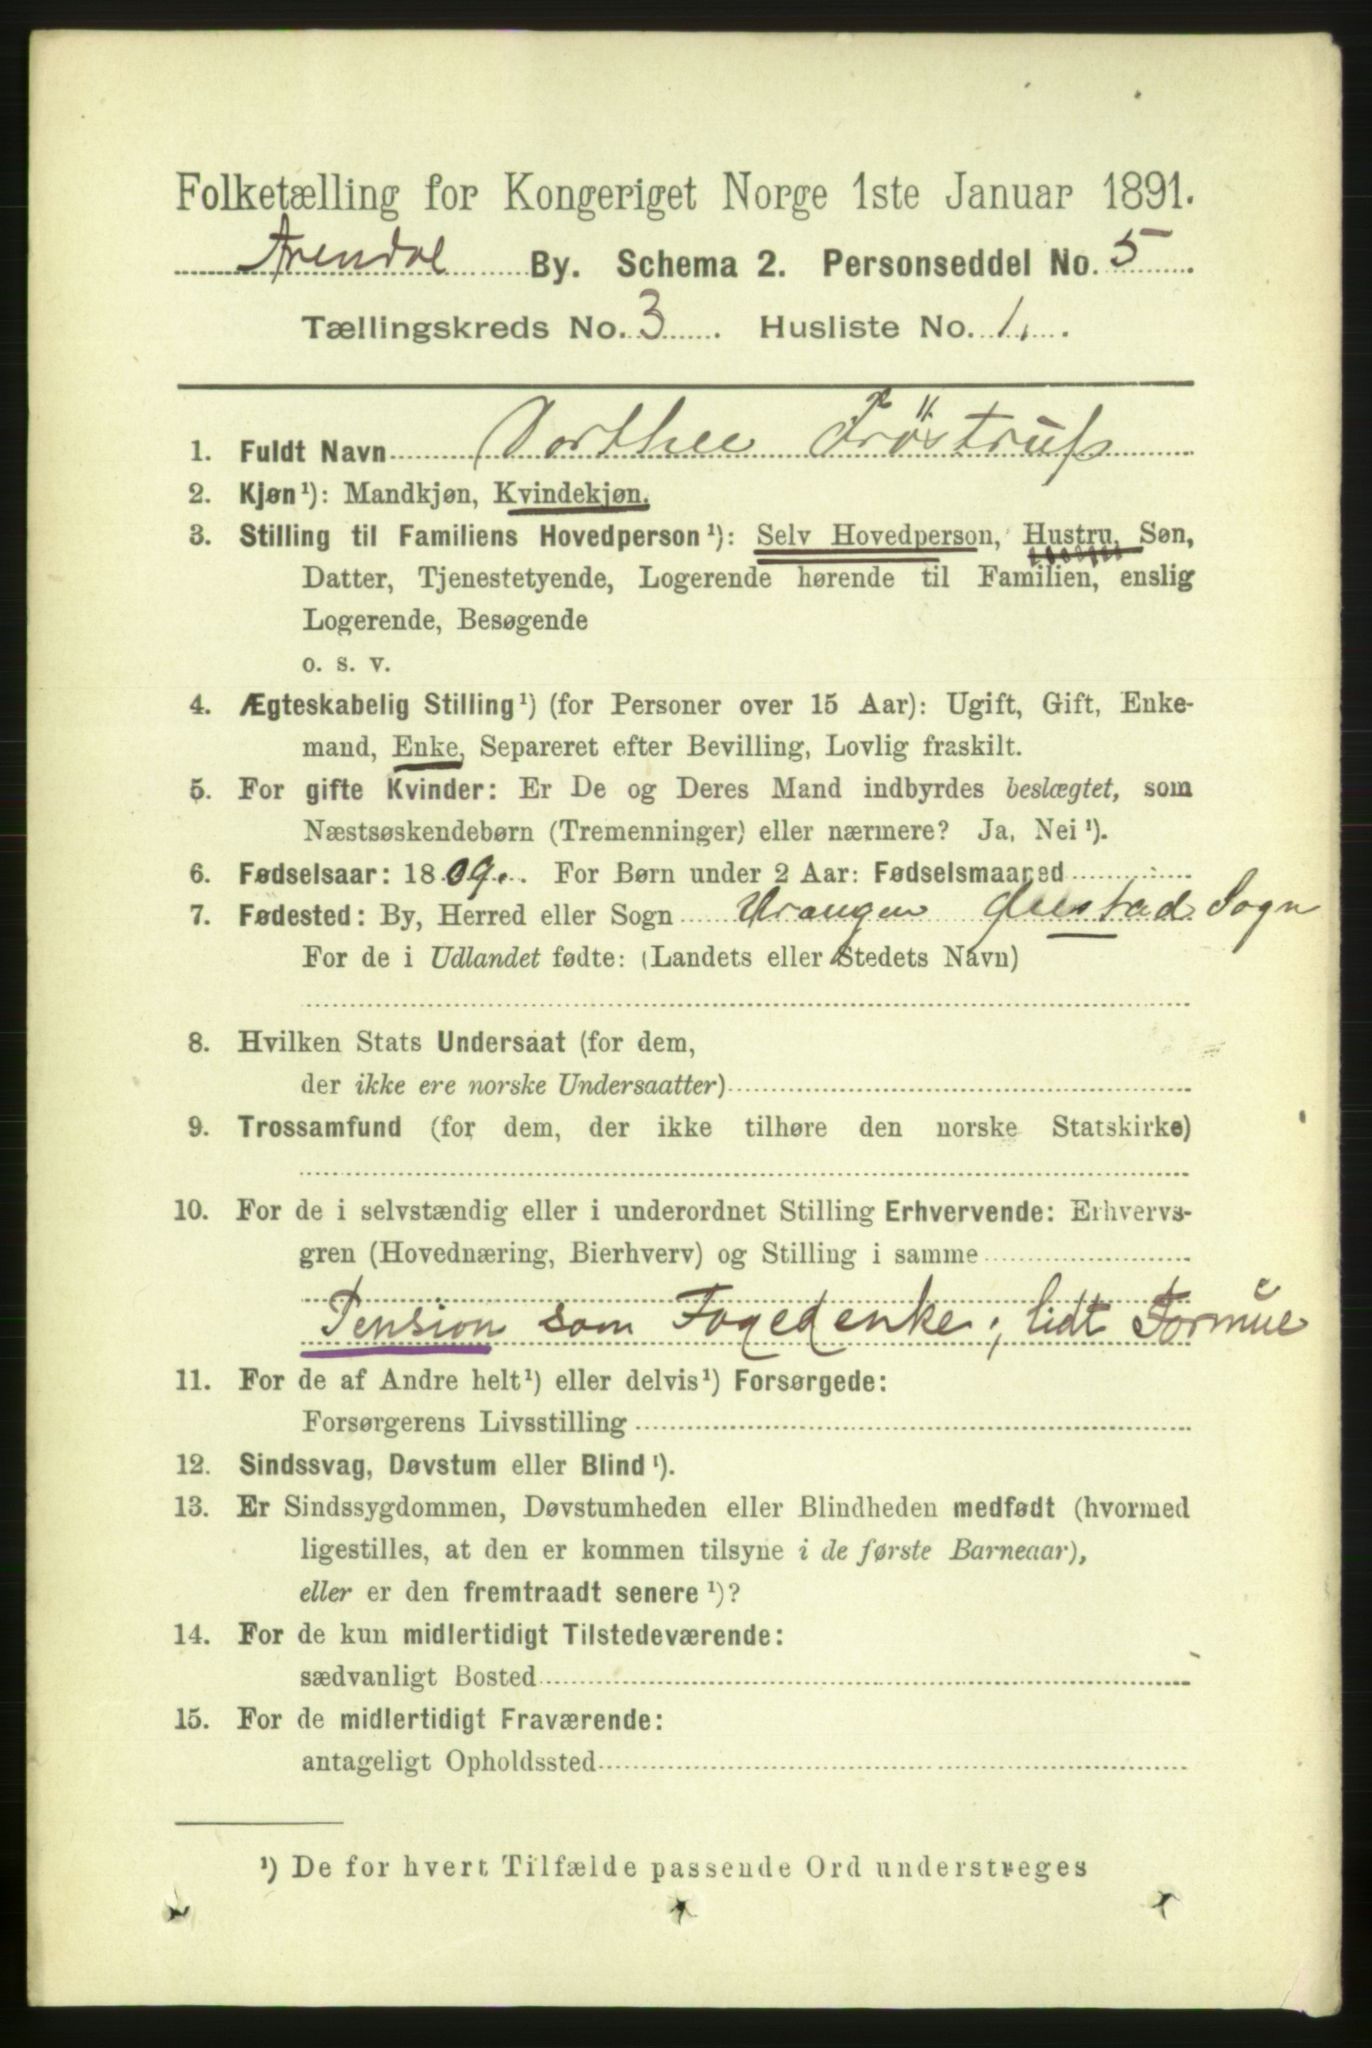 Folketælling for Kongeriget Norge 1ste Januar 1891.
Arendal By. Schema 2. Personseddel No. 5
Tællingskreds No. 3 Husliste No. 1.
1. Fuldt Navn Dorthee Fröstrup
2. Kjøn¹): Mandkjøn, Kvindekjøn.
3. Stilling til Familiens Hovedperson¹): Selv Hovedperson, Hustru, Søn,
Datter, Tjenestetyende, Logerende hørende til Familien, enslig
Logerende, Besøgende
o. s. v.
4. Ægteskabelig Stilling¹) (for Personer over 15 Aar): Ugift, Gift, Enke-
mand, Enke, Separeret efter Bevilling, Lovlig fraskilt.
5. For gifte Kvinder: Er De og Deres Mand indbyrdes beslægtet, som
Næstsøskendebørn (Tremenninger) eller nærmere? Ja, Nei¹).
6. Fødselsaar: 1809. For Børn under 2 Aar: Fødselsmaaned
7. Fødested: By, Herred eller Sogn Vrangen Sogn
For de i Udlandet fødte: (Landets eller Stedets Navn)
8. Hvilken Stats Undersaat (for dem,
der ikke ere norske Undersaatter)
9. Trossamfund (for dem, der ikke tilhøre den norske Statskirke)
10. For de i selvstændig eller i underordnet Stilling Erhvervende: Erhvervs-
gren (Hovednæring, Bierhverv) og Stilling i samme
Pension som Fogedenke; lidt Formue
11. For de af Andre helt¹) eller delvis¹) Forsørgede:
Forsørgerens Livsstilling
12. Sindssvag, Døvstum eller Blind¹).
13. Er Sindssygdommen, Døvstumheden eller Blindheden medfødt (hvormed
ligestilles, at den er kommen tilsyne i de første Barneaar),
eller er den fremtraadt senere¹)?
14. For de kun midlertidigt Tilstedeværende:
sædvanligt Bosted
15. For de midlertidigt Fraværende:
antageligt Opholdssted
¹) De for hvert Tilfælde passende Ord understreges